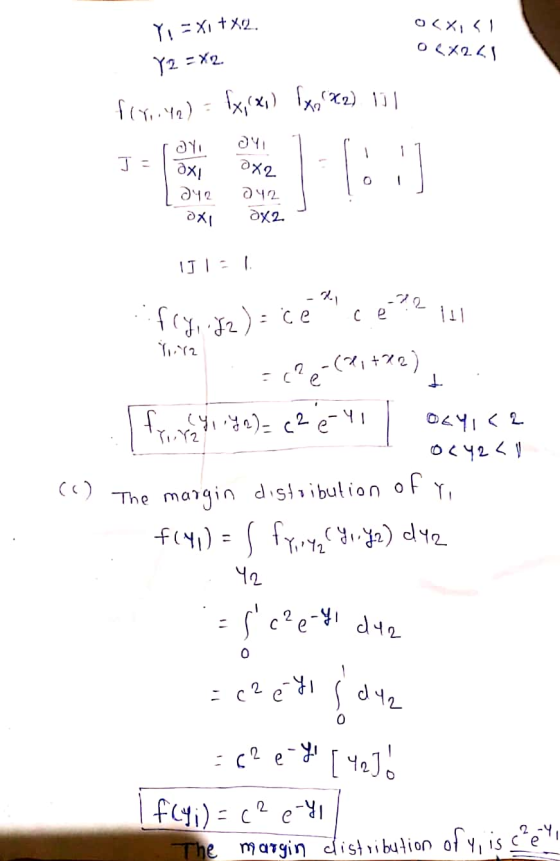 Y1 = X1 + X2. 0 < X1 < 1
Y2 = X2 0 < X2 < 1
f(Y1, Y2) = fX1(x1) fX2(x2) |J|
J = [ ∂Y1/∂X1 ∂Y1/∂X2 ; ∂Y2/∂X1 ∂Y2/∂X2 ] = [ 1 1 ; 0 1 ]
|J| = 1.
∴ f(y1, y2) = c e^-x1 c e^-x2 |1|
Y1, Y2
= c^2 e^-(x1+x2) 1
fY1,Y2(y1, y2) = c^2 e^-y1 0 < y1 < 2
0 < y2 < 1
(c) The margin distribution of Y1
f(y1) = ∫ fY1,Y2(y1, y2) dy2
y2
= ∫0^1 c^2 e^-y1 dy2
= c^2 e^-y1 ∫0^1 dy2
= c^2 e^-y1 [y2]0^1
f(y1) = c^2 e^-y1
The margin distribution of y1 is c^2 e^-y1